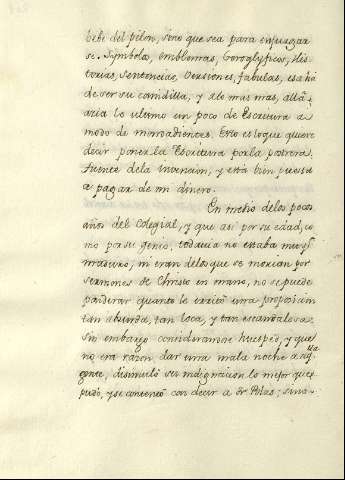 bebe del pilon, sino que sea para enjuagar
se. Symbolos, emblemas, Geroglyficos, His
torias, sentencias, versiones, fabulas, esa ha
de ser su comidilla, y a lo mas mas, allâ
aria lo ultimo un poco de Escritura a
modo de mondadientes. Esto es lo que quiere
decir poner la Escritura por la postrera
fuente de la invencion, y está bien puesta
a pagar de mi dinero.
En medio de los pocos
años del Colegial, y que asi por su edad, co
mo por su genio, todavia no estaba muy
maduro, ni eran de los que se morian por
sermones de Christo en mano, no se puede
ponderar quanto le irritó una proposicion
tan absurda, tan loca, y tan escandalosa.
Sin embargo considerandose huesped, y que
no era razon dar una mala noche a aqlla
gente, disimuló su indignacion lo mejor que
pudo, y se contentó con decir a Fr. Blas; sino